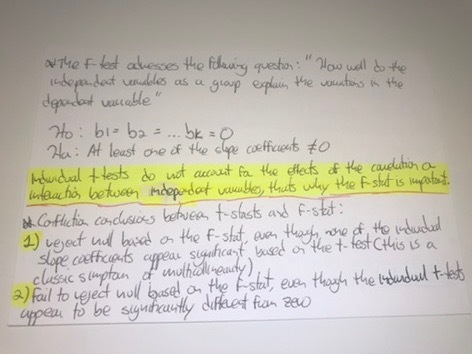 * The F-test adresses the following question: "How well do the
independent variables as a group explain the variations in the
dependent variable"
Ho: b1 = b2 = ... bk = 0
Ha: At least one of the slope coefficients ≠0
Individual t-tests do not account for the effects of the correlation or
interaction between independent variables, thats why the F-stat is important.
* Confliction conclusions between t-stasts and F-stat:
1) reject null based on the F-stat, even though none of the individual
slope coefficients appear significant based on the t-test (this is a
classic symptom of multicollinearity)
2) fail to reject null based on the F-stat, even though the individual t-tests
appear to be significantly different from zero